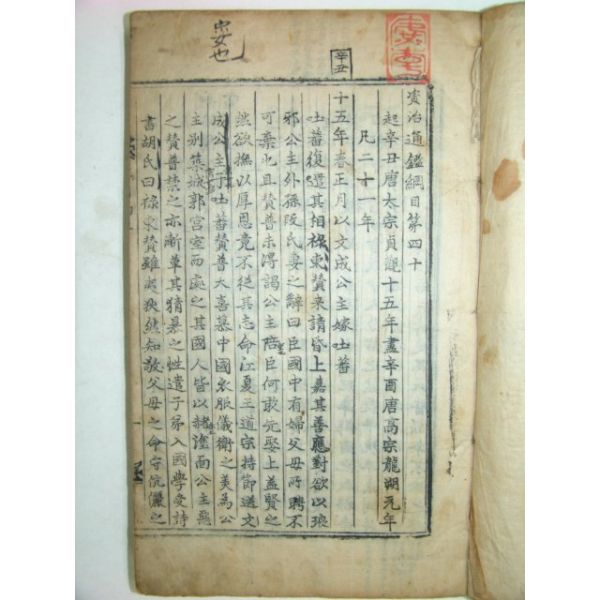 資治通鑑綱目第四十
起辛丑唐太宗貞觀十五年盡辛酉唐高宗龍湖元年
凡二十一年
辛丑
十五年春正月以文成公主嫁吐蕃
吐蕃復遣其相祿東贊來請昏上嘉其善應對欲以琅
邪公主外孫段氏妻之辭曰臣國中有婦父母所聘不
可棄也且贊普未得謁公主陪臣何敢先娶上益賢之
然欲撫以厚恩竟不從其志命江夏王道宗持節送文
成公主于吐蕃贊普大喜慕中國衣服儀衛之美爲公
主別築城郭宮室而處之其國人皆以赭塗面公主惡
之贊普禁之亦漸革其猜暴之性遣子弟入國學受詩
書胡氏曰祿東贊雖夷狄繼知敬父母之命守伉儷之
忠女也